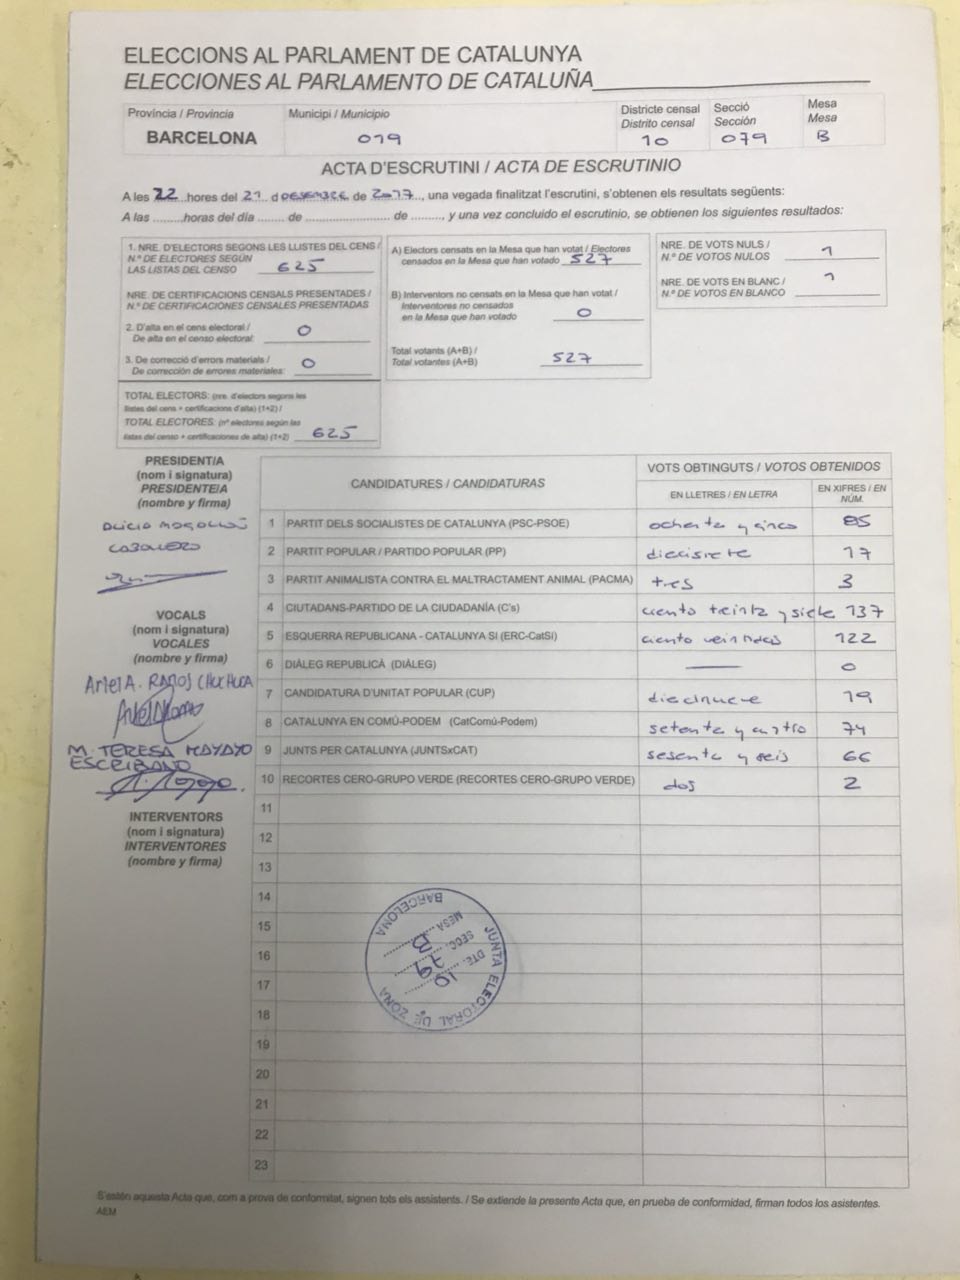 ELECCIONS AL PARLAMENT DE CATALUNYA
ELECCIONES AL PARLAMENTO DE CATALUÑA
Província / Provincia
BARCELONA
Municipi / Municipio
019
Districte censal
Distrito censal
10
Secció
Sección
079
Mesa
Mesa
B
ACTA D'ESCRUTINI / ACTA DE ESCRUTINIO
A les 22 hores del 21 d DESEMBRE de 2017, una vegada finalitzat l'escrutini, s'obtenen els resultats següents:
A las ......... horas del día ....... de ...................... de ........., y una vez concluido el escrutinio, se obtienen los siguientes resultados:
1. NRE. D'ELECTORS SEGONS LES LLISTES DEL CENS /
N.º DE ELECTORES SEGÚN
LAS LISTAS DEL CENSO 625
NRE. DE CERTIFICACIONS CENSALS PRESENTADES /
N.º DE CERTIFICACIONES CENSALES PRESENTADAS
2. D'alta en el cens electoral /
De alta en el censo electoral: 0
3. De correcció d'errors materials /
De corrección de errores materiales: 0
TOTAL ELECTORS: (nre. d'electors segons les
llistes del cens + certificacions d'alta) (1+2) /
TOTAL ELECTORES: (nº electores según las
listas del censo + certificaciones de alta) (1+2) 625
A) Electors censats en la Mesa que han votat / Electores
censados en la Mesa que han votado 527
B) Interventors no censats en la Mesa que han votat /
Interventores no censados
en la Mesa que han votado 0
Total votants (A+B) /
Total votantes (A+B) 527
NRE. DE VOTS NULS /
N.º DE VOTOS NULOS 1
NRE. DE VOTS EN BLANC /
N.º DE VOTOS EN BLANCO 1
PRESIDENT/A
(nom i signatura)
PRESIDENTE/A
(nombre y firma)
VOCALS
(nom i signatura)
VOCALES
(nombre y firma)
Ariel A. RAMOS CHUCHUCA
M. TERESA MAYAYO
ESCRIBANO
INTERVENTORS
(nom i signatura)
INTERVENTORES
(nombre y firma)
CANDIDATURES / CANDIDATURAS
VOTS OBTINGUTS / VOTOS OBTENIDOS
EN LLETRES / EN LETRA
EN XIFRES / EN
NÚM.
1 PARTIT DELS SOCIALISTES DE CATALUNYA (PSC-PSOE) ochenta y cinco 85
2 PARTIT POPULAR / PARTIDO POPULAR (PP) diecisiete 17
3 PARTIT ANIMALISTA CONTRA EL MALTRACTAMENT ANIMAL (PACMA) tres 3
4 CIUTADANS-PARTIDO DE LA CIUDADANÍA (C's) ciento treinta y siete 137
5 ESQUERRA REPUBLICANA - CATALUNYA SÍ (ERC-CatSí) ciento veintidos 122
6 DIÀLEG REPUBLICÀ (DIÀLEG) — 0
7 CANDIDATURA D'UNITAT POPULAR (CUP) diecinueve 19
8 CATALUNYA EN COMÚ-PODEM (CatComú-Podem) setenta y cuatro 74
9 JUNTS PER CATALUNYA (JUNTSxCAT) sesenta y seis 66
10 RECORTES CERO-GRUPO VERDE (RECORTES CERO-GRUPO VERDE) dos 2
11
12
13
14
15
16
17
18
19
20
21
22
23
JUNTA ELECTORAL DE ZONA
BARCELONA
DTE. 10
SECC. 79
MESA B
S'estén aquesta Acta que, com a prova de conformitat, signen tots els assistents. / Se extiende la presente Acta que, en prueba de conformidad, firman todos los asistentes.
AEM